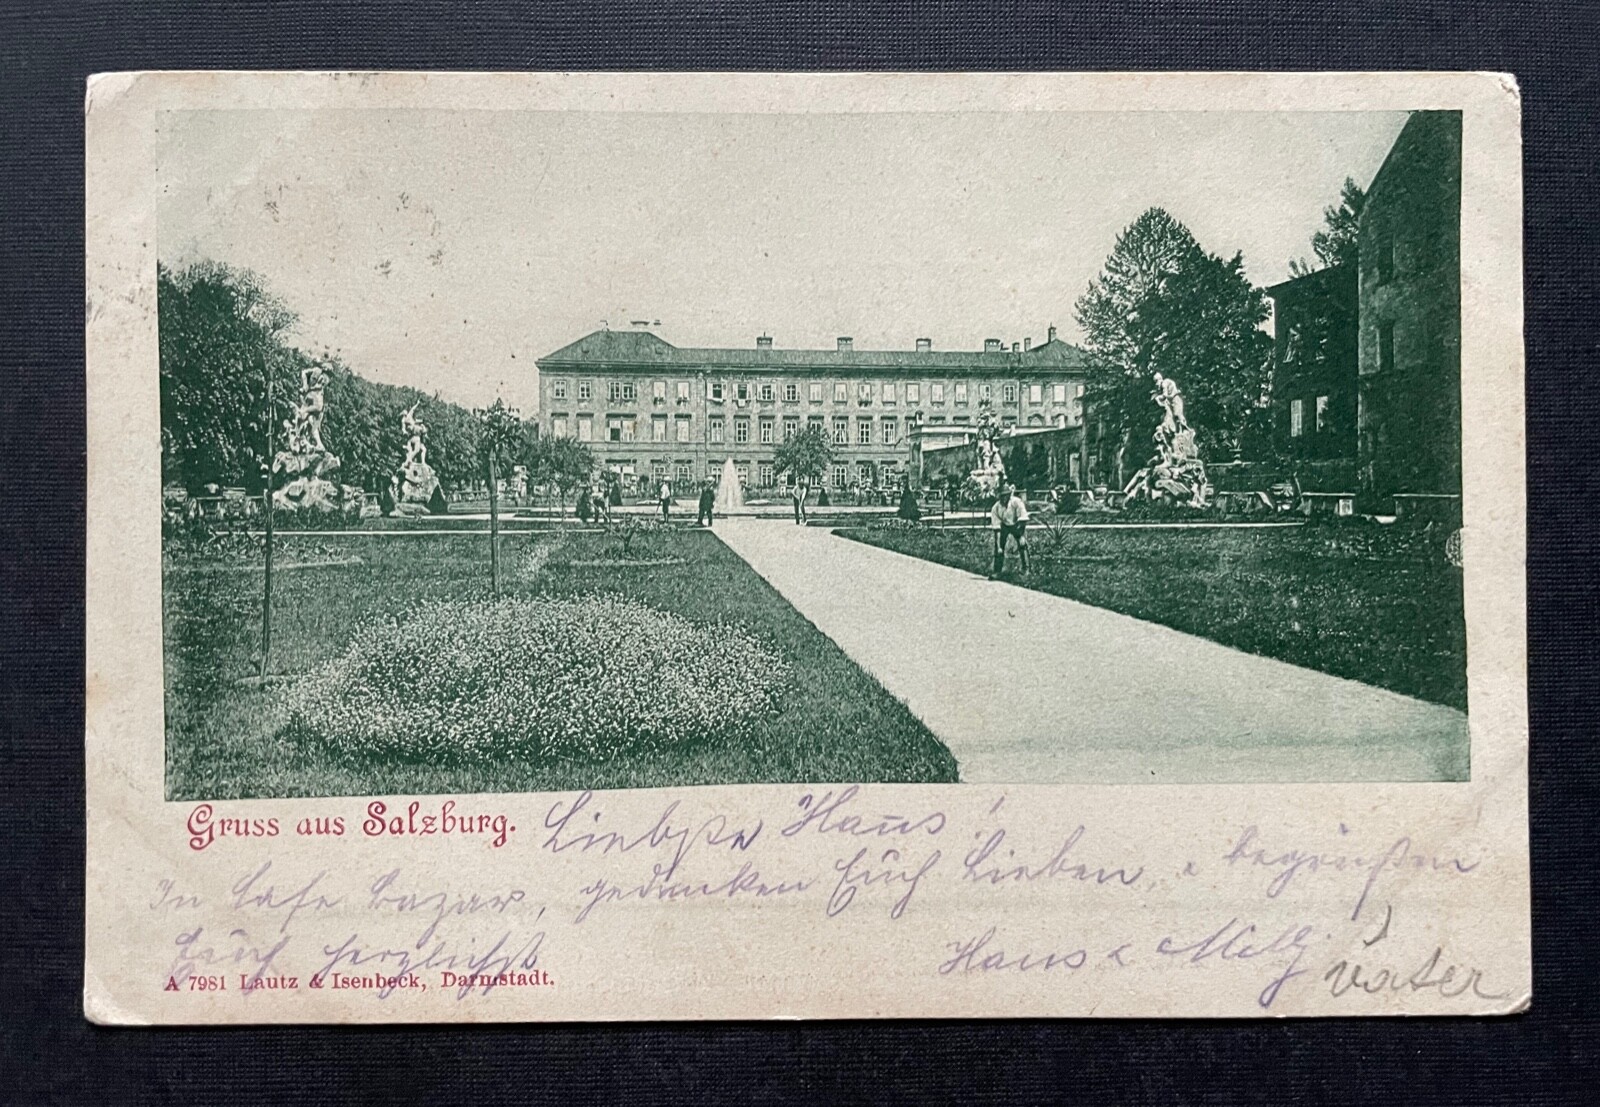 Gruss aus Salzburg.
Liebste Hans!
In Cafe Bazar, gedenken Euch Lieben, u begrüßen
Euch herzlichst
Hans & Milly
Vater
A 7981 Lautz & Isenbeck, Darmstadt.